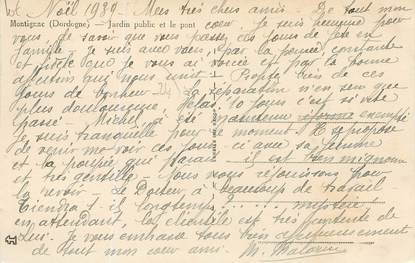 Noël 1939 - Mes très chers amis - De tout mon
Montignac (Dordogne) — Jardin public et le pont
cœur je suis heureuse pour
vous de savoir que vous passez ces jours de fête en
famille - Je suis avec vous, par la pensée constante
et fidèle que je vous ai vouée et par la bonne
affection qui nous unit ! Profitez très de ces
jours de bonheur - La séparation n'en sera que
plus douloureuse, hélas ! 10 jours c'est si vite
passé - Michel a été réformé exempté
je suis tranquille pour moment Il se propose
de venir me voir ces jours-ci avec sa femme
et la poupée que paraît il est bien mignonne
et très gentille - Nous nous réjouissons pour
la revoir - Le Docteur a beaucoup de travail -
Tiendra t-il longtemps ? ...... mystère !
en attendant, la clientèle est très contente de
lui. Je vous embrasse tous très affectueusement
de tout mon cœur ami. M.